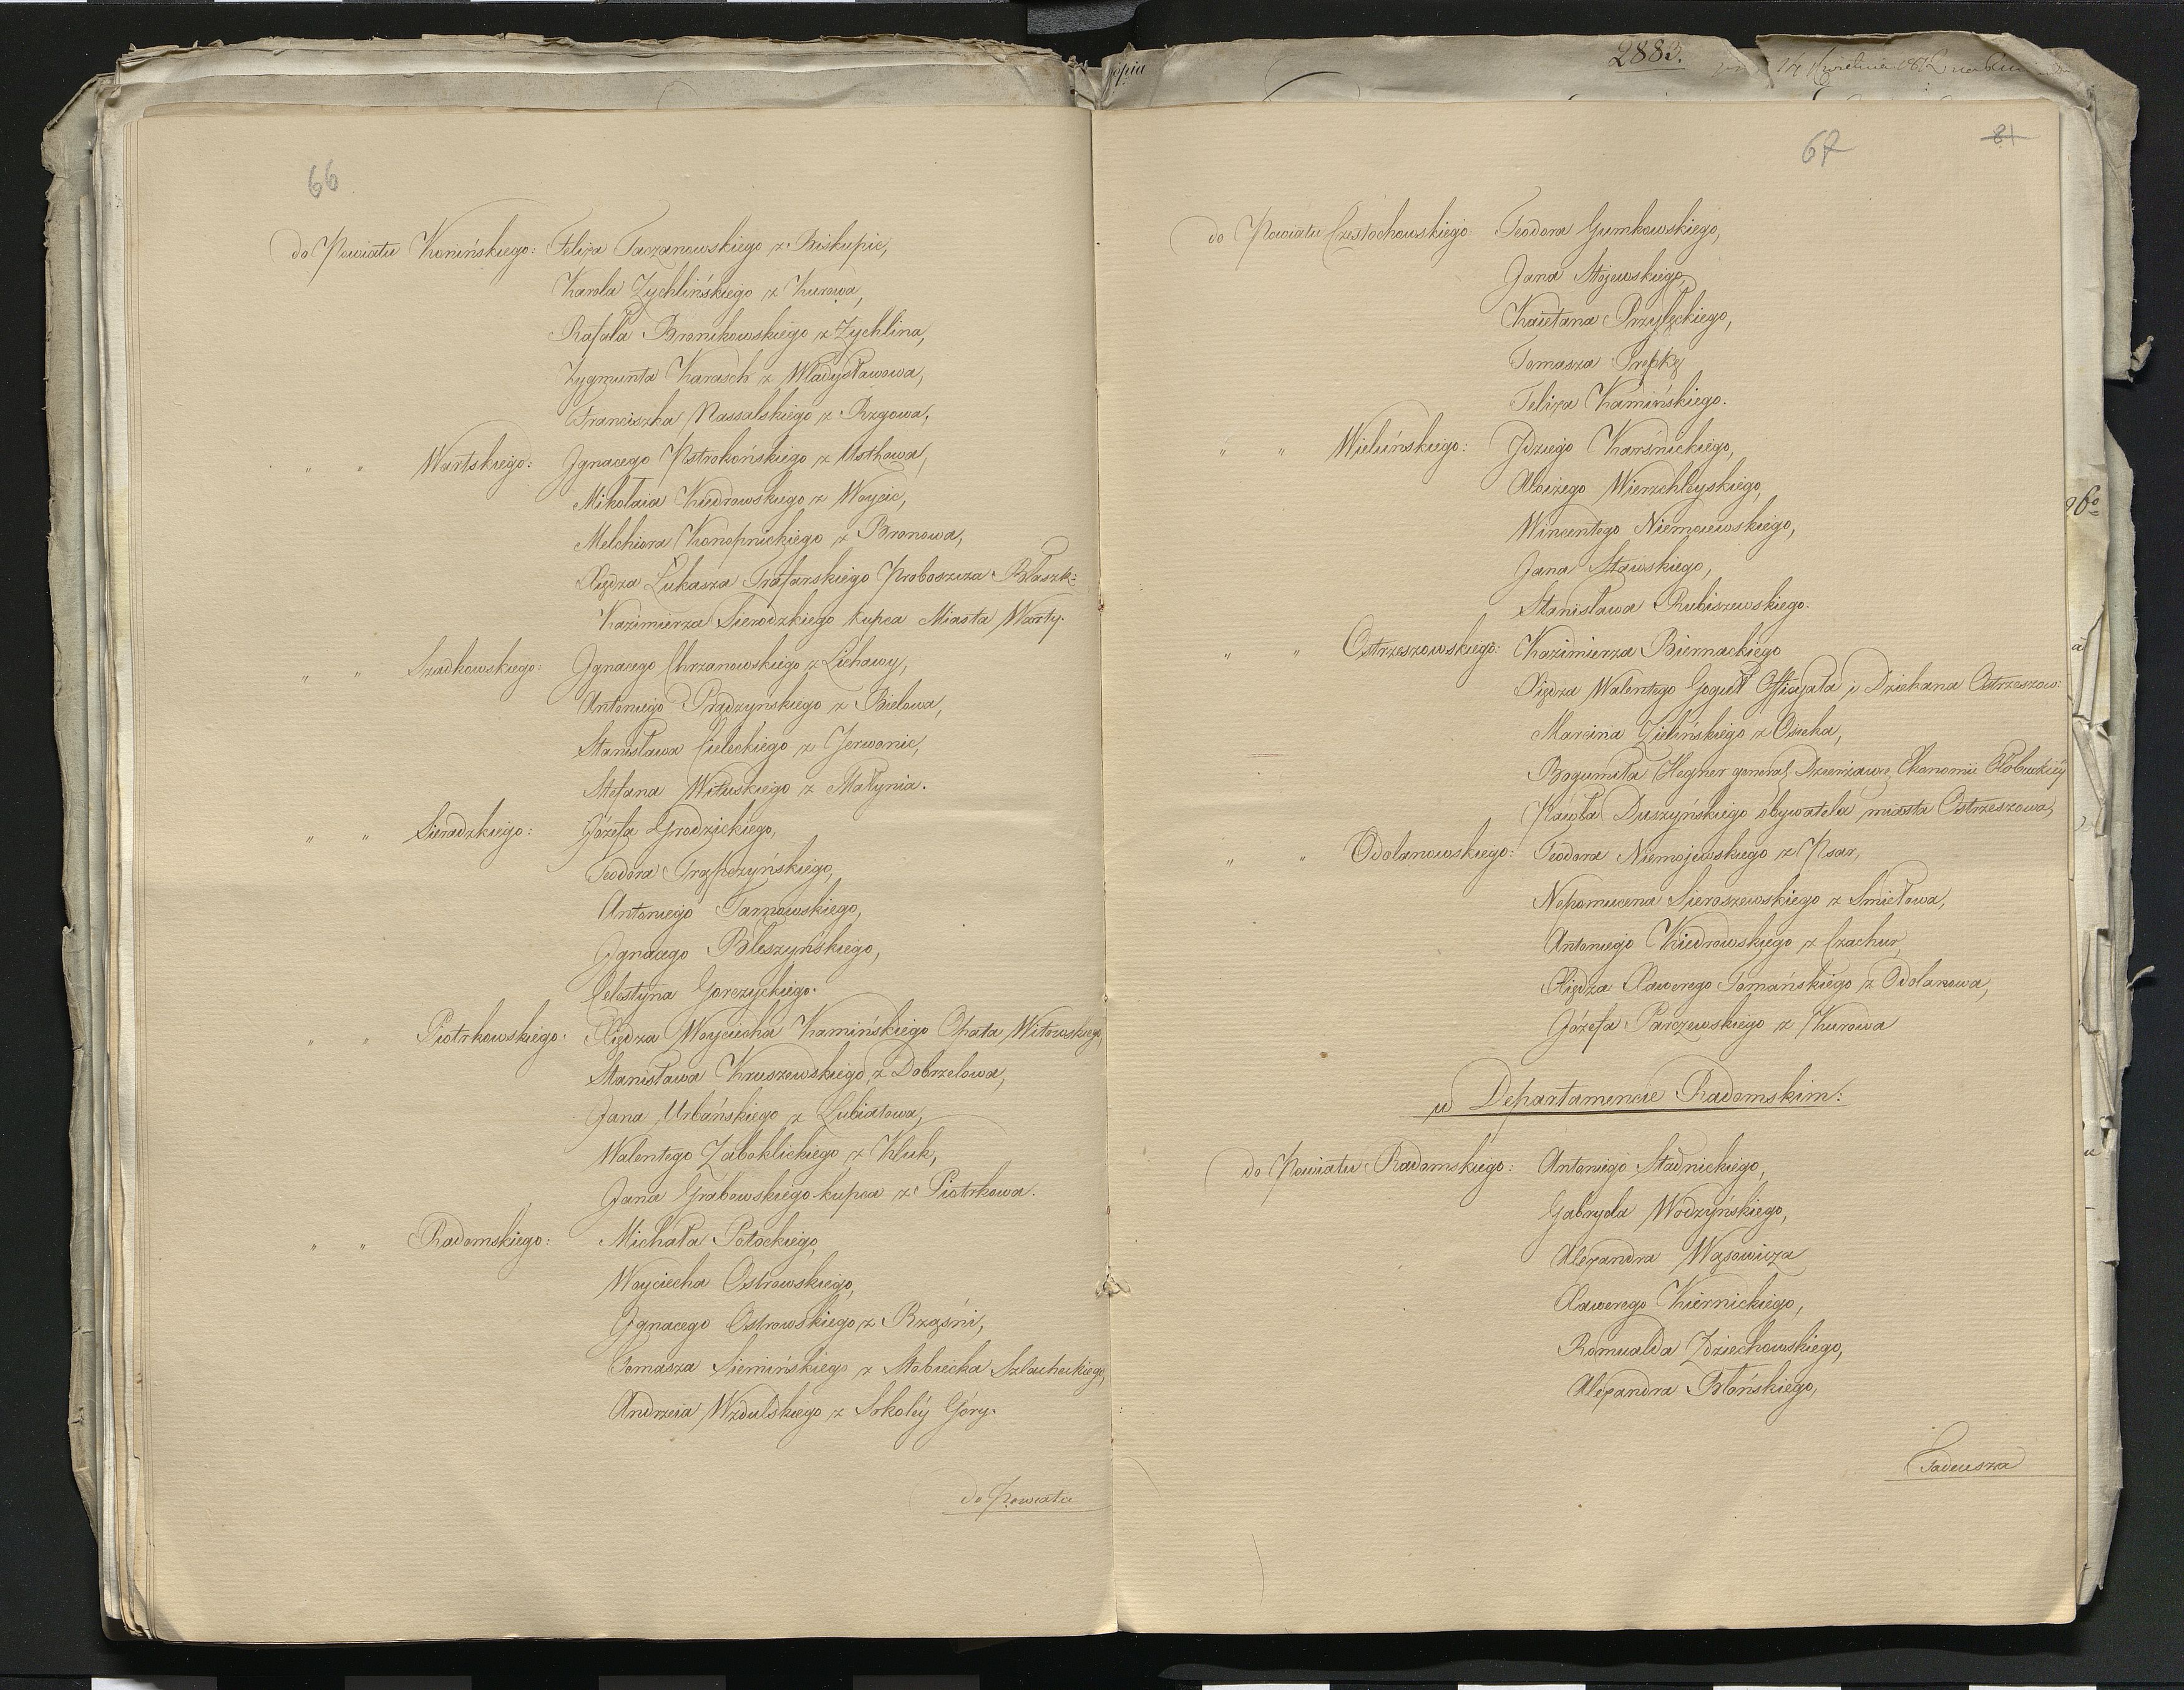 66
do Powiatu Konińskiego: Felixa Taczanowskiego z Biskupic,
Karola Zychlińskiego z Kurowa,
Rafała Bronikowskiego z Zychlina,
Zygmunta Karasch z Władysławowa,
Franciszka Nassalskiego z Rzgowa,
" " Wartskiego: Jgnacego Pstrokońskiego z Ustkowa,
Mikołaia Kudrowskiego z Woycic,
Melchiora Konopnickiego z Bronowa,
Xiędza Łukasza Trafarskiego Proboszcza Błaszk:
Kazimierza Sierodzkiego kupca Miasta Warty.
" " Szadkowskiego: Jgnacego Chrzanowskiego z Lichawy,
Antoniego Prądzyńskiego z Bielowa,
Stanisława Cieleckiego z Jerwonic,
Stefana Wituskiego z Małynia.
" " Sieradzkiego: Józefa Grodzickiego,
Teodora Trąpczyńskiego,
Antoniego Tarnowskiego,
Jgnacego Błeszyńskiego,
Celestyna Gorczyckiego.
" " Piotrkowskiego: Xiędza Woyciecha Kamińskiego Opata Witowskiego,
Stanisława Kruszewskiego z Dobrzelowa,
Jana Urbańskiego z Lubiatowa,
Walentego Zaboklickiego z Kluk,
Jana Grabowskiego kupca z Piotrkowa.
" " Radomskiego: Michała Potockiego,
Woyciecha Ostrowskiego,
Jgnacego Ostrowskiego z Rząśni,
Tomasza Siemińskiego z Stobiecka Szlacheckiego,
Andrzeia Wzdulskiego z Sokoléy Góry.
do Powiatu
2883.
67
81
do Powiatu Częstochowskiego: Teodora Gumkowskiego,
Jana Stojewskiego,
Kaietana Przyłęckiego,
Tomasza Trepkę
Felixa Kamińskiego.
" " Wieluńskiego: Jdziego Karśnickiego,
Aloizego Wierzchleyskiego,
Wincentego Niemoiewskiego,
Jana Stawskiego,
Stanisława Rubiszewskiego.
" " Ostrzeszowskiego: Kazimierza Biernackiego
Xiędza Walentego Goguł Officyała i Dziekana Ostrzeszow:
Marcina Zielińskiego z Osieka,
Bogumiła Hegner general: Dzierżawcę Ekonomii Kłobuckiéy
Pawła Duszyńskiego obywatela miasta Ostrzeszowa,
" " Odolanowskiego: Teodora Niemojewskiego z Psar,
Nepomucena Sieroszewskiego z Smiełowa,
Antoniego Kiedrowskiego z Czachur,
Xiędza Xawerego Tomańskiego z Odolanowa,
Józefa Parczewskiego z Kurowa
w Departamencie Radomskim:
do Powiatu Radomskiego: Antoniego Stadnickiego,
Gabryela Wodzyńskiego,
Alexandra Wąsowicza
Xawerego Kiernickiego,
Romualda Zdziechowskiego,
Alexandra Błońskiego,
Tadeusza